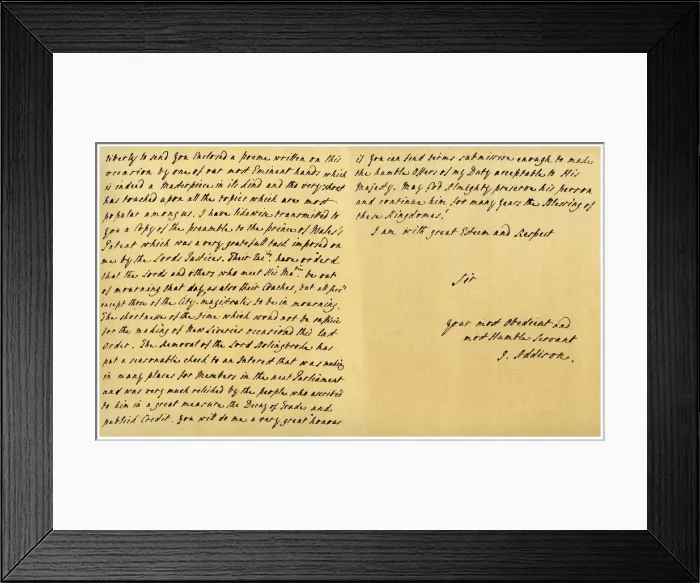 liberty to send you Enclosed a poeme written on this
occasion by one of our most Eminent hands which
is indeed a Masterpiece in its kind and tho very short
has touched upon all the topics which are most
popular among us. I have likewise transmitted to
you a Copy of the preamble to the prince of Wales's
Patent which was a very gratefull task imposed on
me by the Lords Justices. Their Exᶜʸˢ. have orderd
that the Lords and others who meet His Maᵗⁱᵉ. be out
of mourning that day, as also their Coaches, but all
except those of the City-magistrates to be in mourning.
The shortness of the time which woud not be suffict
for the making of New Liveries occasiond this last
Order. The Removal of the Lord Bolingbroke has
put a seasonable check to an Interest that was making
in many places for Members in the next Parliament
and was very much relished by the people who ascribed
to him in a great measure the Decay of Trade and
publick Credit. you will do me a very great honour
if you can find terms submissive enough to make
the humble Offers of my Duty acceptable to His
Majesty. May God Almighty preserve his person
and continue him for many years the Blessing of
these Kingdomes!
I am with great Esteem and Respect
Sir
your most Obedient and
most Humble Servant
J. Addison.